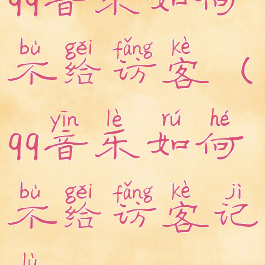 99音乐如何
bù gěi fǎng kè
不给访客（
yīn lè rú hé
99音乐如何
bù gěi fǎng kè jì
不给访客记
lù